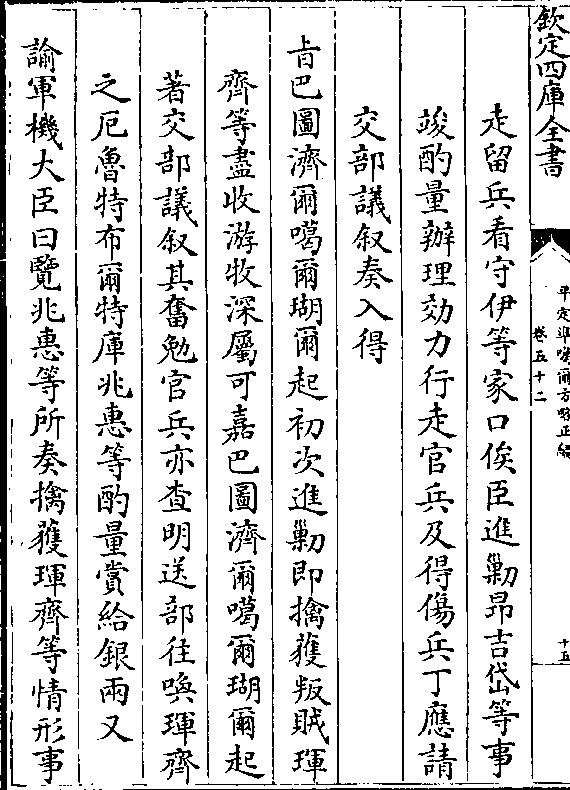 欽定四庫全書
平定準噶爾方略正編
卷五十二
十五
走留兵看守伊等家口俟臣進勦昂吉岱等事
竣酌量辦理効力行走官兵及得傷兵丁應請
交部議叙奏入得
㫖巴圖濟爾噶爾瑚爾起初次進勦即擒獲叛賊琿
齊等盡收游牧深屬可嘉巴圖濟爾噶爾瑚爾起
著交部議叙其奮勉官兵亦查明送部徃喚琿齊
之厄魯特布爾特庫兆惠等酌量賞給銀兩又
諭軍機大臣曰覽兆惠等所奏擒獲琿齊等情形事